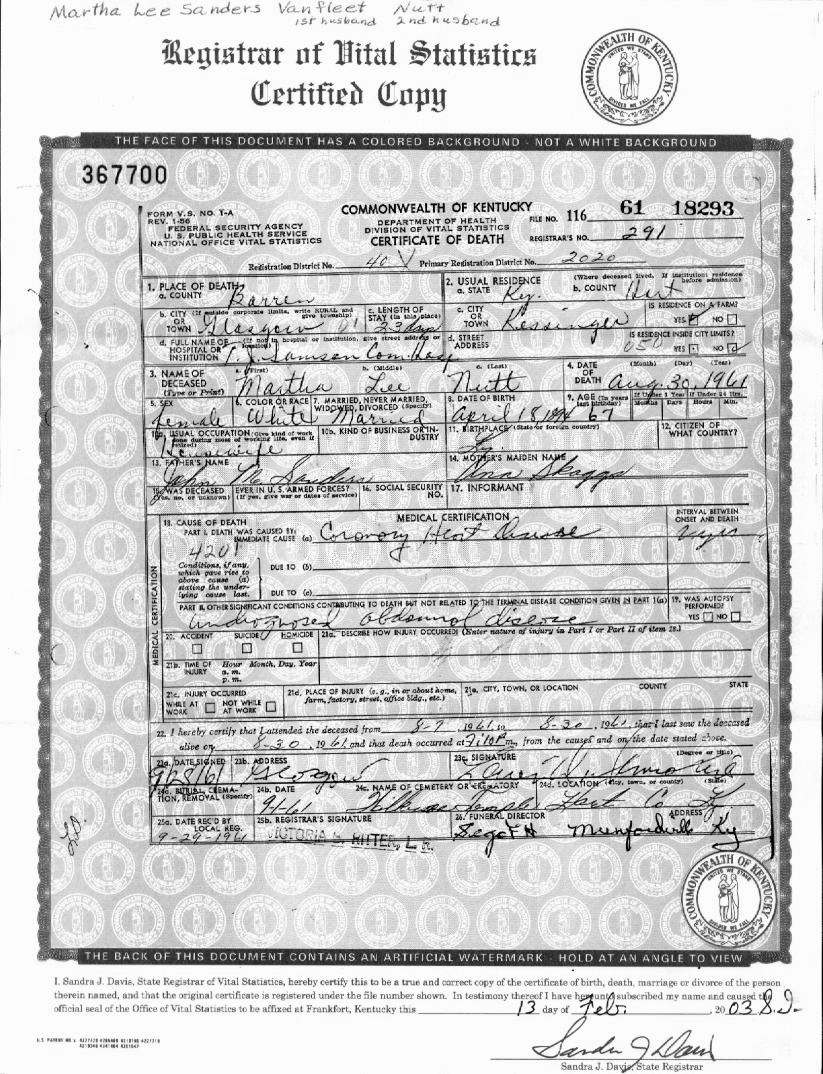 Martha Lee Sanders Vanfleet Nutt
1st husband 2nd husband
Registrar of Vital Statistics
Certified Copy
COMMONWEALTH OF KENTUCKY
THE FACE OF THIS DOCUMENT HAS A COLORED BACKGROUND - NOT A WHITE BACKGROUND
367700
FORM V.S. NO. 1-A
REV. 1-56
FEDERAL SECURITY AGENCY
U. S. PUBLIC HEALTH SERVICE
NATIONAL OFFICE VITAL STATISTICS
COMMONWEALTH OF KENTUCKY
DEPARTMENT OF HEALTH
DIVISION OF VITAL STATISTICS
CERTIFICATE OF DEATH
FILE NO. 116 61 18293
REGISTRAR'S NO. 291
Registration District No. 40 Primary Registration District No. 2020
1. PLACE OF DEATH
a. COUNTY Barren
2. USUAL RESIDENCE (Where deceased lived. If institution: residence before admission)
a. STATE Ky. b. COUNTY Hart
b. CITY (If outside corporate limits, write RURAL and give township)
OR TOWN Glasgow
c. LENGTH OF STAY (in this place) 23 days
c. CITY OR TOWN Kessinger
IS RESIDENCE ON A FARM?
YES NO
d. FULL NAME OF (If not in hospital or institution, give street address or location)
HOSPITAL OR INSTITUTION T. J. Samson Com. Hosp
d. STREET ADDRESS 050
IS RESIDENCE INSIDE CITY LIMITS?
YES NO
3. NAME OF DECEASED (Type or Print)
a. (First) Martha b. (Middle) Lee c. (Last) Nutt
4. DATE OF DEATH (Month) (Day) (Year) Aug. 30, 1961
5. SEX female
6. COLOR OR RACE White
7. MARRIED, NEVER MARRIED, WIDOWED, DIVORCED (Specify) Married
8. DATE OF BIRTH April 18, 1894
9. AGE (In years last birthday) 67
If Under 1 Year Months Days If Under 24 Hrs. Hours Min.
10a. USUAL OCCUPATION (Give kind of work done during most of working life, even if retired) Housewife
10b. KIND OF BUSINESS OR INDUSTRY
11. BIRTHPLACE (State or foreign country) Ky
12. CITIZEN OF WHAT COUNTRY?
13. FATHER'S NAME John M. Sanders
14. MOTHER'S MAIDEN NAME Skaggs
15. WAS DECEASED EVER IN U. S. ARMED FORCES?
(Yes, no, or unknown) (If yes, give war or dates of service)
16. SOCIAL SECURITY NO.
17. INFORMANT
MEDICAL CERTIFICATION
18. CAUSE OF DEATH
PART I. DEATH WAS CAUSED BY:
IMMEDIATE CAUSE (a) Coronary Heart Disease
4201
INTERVAL BETWEEN ONSET AND DEATH
Conditions, if any, which gave rise to above cause (a) stating the underlying cause last.
DUE TO (b)
DUE TO (c)
PART II. OTHER SIGNIFICANT CONDITIONS CONTRIBUTING TO DEATH BUT NOT RELATED TO THE TERMINAL DISEASE CONDITION GIVEN IN PART I(a)
undiagnosed abdominal disease
19. WAS AUTOPSY PERFORMED?
YES NO
20. ACCIDENT SUICIDE HOMICIDE
21a. DESCRIBE HOW INJURY OCCURRED? (Enter nature of injury in Part I or Part II of item 18.)
21b. TIME OF INJURY Hour Month, Day, Year
a. m.
p. m.
21c. INJURY OCCURRED
WHILE AT WORK NOT WHILE AT WORK
21d. PLACE OF INJURY (e.g., in or about home, farm, factory, street, office bldg., etc.)
21e. CITY, TOWN, OR LOCATION COUNTY STATE
22. I hereby certify that I attended the deceased from 8-7, 1961, to 8-30, 1961, that I last saw the deceased
alive on 8-30, 1961, and that death occurred at 7:10 P m., from the causes and on the date stated above.
23a. DATE SIGNED 9/28/61
23b. ADDRESS Glasgow
23c. SIGNATURE (Degree or title)
24a. BURIAL, CREMATION, REMOVAL (Specify)
24b. DATE 9-1-61
24c. NAME OF CEMETERY OR CREMATORY Temple
24d. LOCATION (City, town, or county) (State) Hart Co Ky
25a. DATE REC'D BY LOCAL REG. 9-29-1961
25b. REGISTRAR'S SIGNATURE VICTORIA RITTER, L. R.
26. FUNERAL DIRECTOR Sego F H
ADDRESS Munfordville Ky
MEDICAL CERTIFICATION
COMMONWEALTH OF KENTUCKY
THE BACK OF THIS DOCUMENT CONTAINS AN ARTIFICIAL WATERMARK - HOLD AT AN ANGLE TO VIEW
I, Sandra J. Davis, State Registrar of Vital Statistics, hereby certify this to be a true and correct copy of the certificate of birth, death, marriage or divorce of the person
therein named, and that the original certificate is registered under the file number shown. In testimony thereof I have hereunto subscribed my name and caused the
official seal of the Office of Vital Statistics to be affixed at Frankfort, Kentucky this 13 day of Feb. , 2003 S.D.
Sandra J Davis
Sandra J. Davis, State Registrar